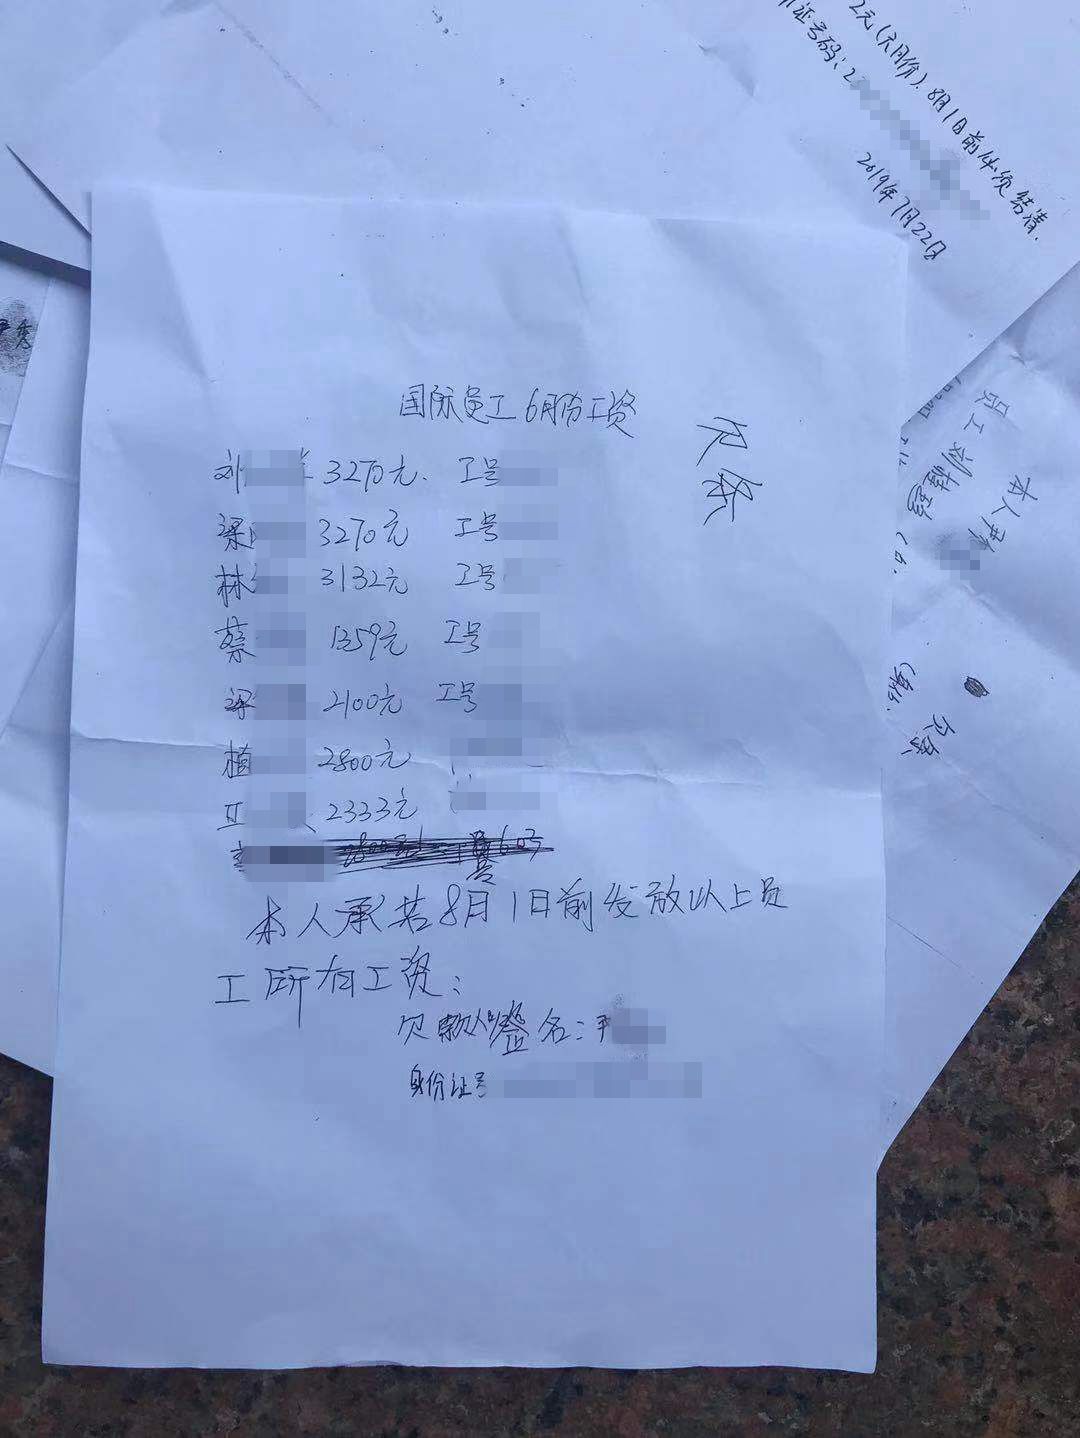 2元(六月份).8月1日前必须结清.
证号码:2
2019年7月22日
国际员工6月份工资
欠条
刘 3270元. 工号
梁 3270元 工号
林 3132元 工号
蔡 1359元 工号
梁 2100元 工号
植 2800元
2333元
本人承若8月1日前发放以上员
工所有工资:
欠款人签名:尹
身份证号
本人尹
员工刘
欠条